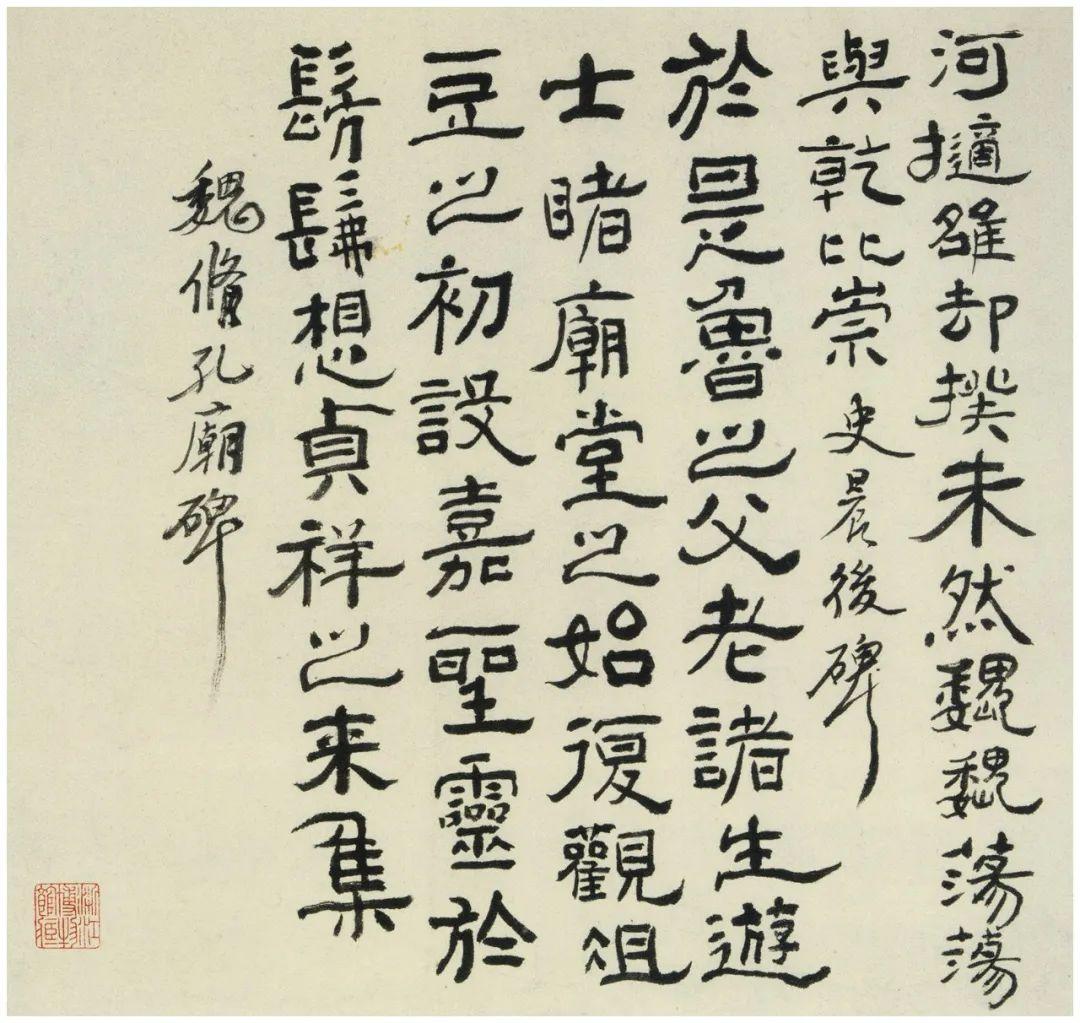 河擿雒却揆未然巍巍蕩蕩
與乾比崇 史晨後碑
於是魯之父老諸生遊
士睹廟堂之始復觀俎
豆之初設嘉聖靈於
髣髴想貞祥之来集
魏脩孔廟碑
浙江博物館